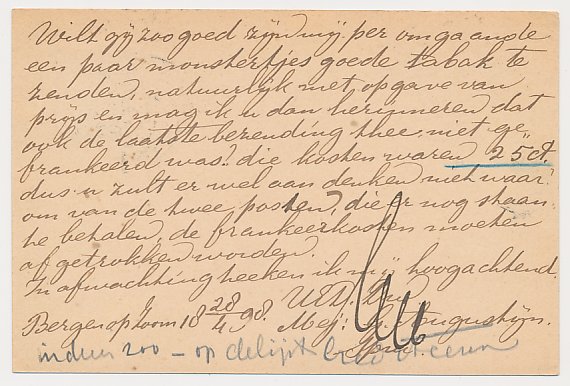 Wilt gij zoo goed zijn mij per omgaande
een paar monstertjes goede tabak te
zenden, natuurlijk met opgave van
prijs en mag ik u dan herinneren dat
ook de laatste bezending thee niet ge„
frankeerd was? die kosten waren 25 ct
dus u zult er wel aan denken niet waar?
om van de twee posten, die er nog staan
te betalen, de frankeerkosten moeten
afgetrokken worden.
In afwachting teeken ik mij hoogachtend.
UEd. Dw
Bergen op Zoom 18 28/4 98. Mej: G. Augustijn.
in duur zoo – op de lijst